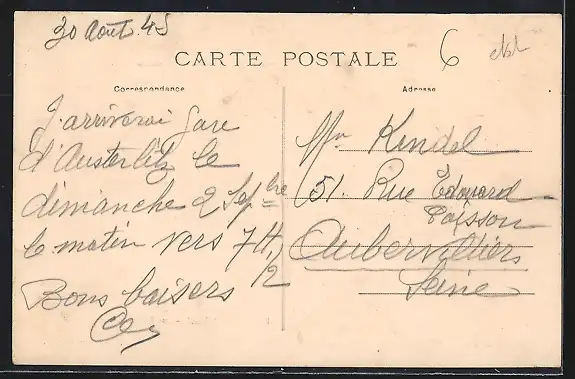 30 Août 45
6
CARTE POSTALE
Correspondance
Adresse
J'arriverai Gare
d'Austerlitz le
dimanche 2 Sepbre
le matin vers 7H 1/2
Bons baisers
Mr Kindel
51. Rue Edouard
Poisson
Aubervilliers
Seine